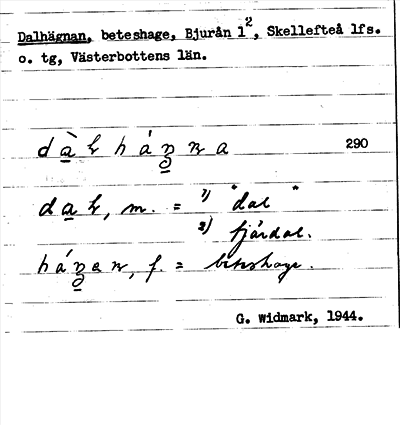 Dalhägnan, beteshage, Bjurån 1², Skellefteå lfs.
o. tg, Västerbottens län.
290
m. = 1) "dal"
2) fjärdal.
f. = beteshage.
G. Widmark, 1944.